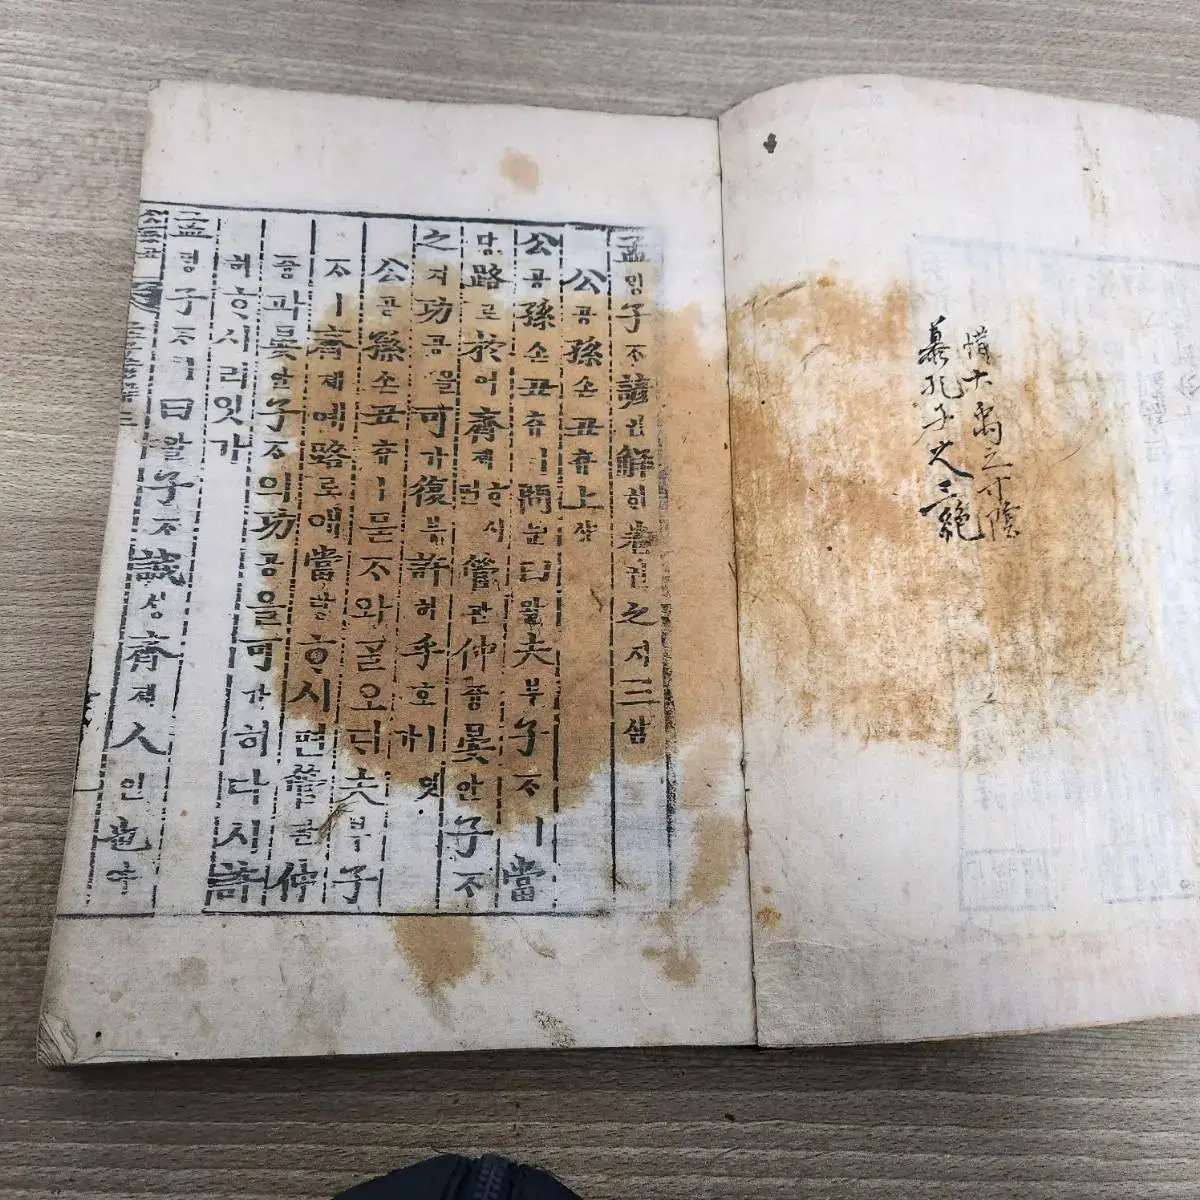 惜大禹之寸陰
慕孔子之三絶
孟밍子ᄌᆞ諺언解ᄒᆡ卷권之지三삼
公공孫손丑츄上샹
公공孫손丑츄ㅣ問문曰왈夫부子ᄌᆞㅣ當
당路로於어齊졔ᄒᆞ시면管관仲듕晏안子ᄌᆞ
之지功공을可가復부許허乎호
公공孫손丑츄ㅣ묻ᄌᆞ와ᄀᆞᆯ오ᄃᆡ夫부子
ᄌᆞㅣ齊졔예路로애當당ᄒᆞ시면管관仲
듕과晏안子ᄌᆞ의功공을可가히다시許
허ᄒᆞ시리잇가
孟밍子ᄌᆞㅣ曰왈子ᄌᆞ誠셩齊졔人인也야